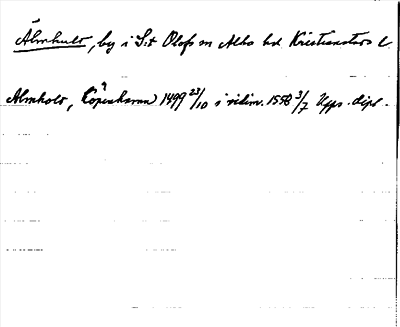 Älmhult, by i S:t Olofs sn Albo hd Kristianstads l.
Almholt, (Köpenhamn) 1499 23/10 i vidim. 1558 3/7 Upps. dipl.